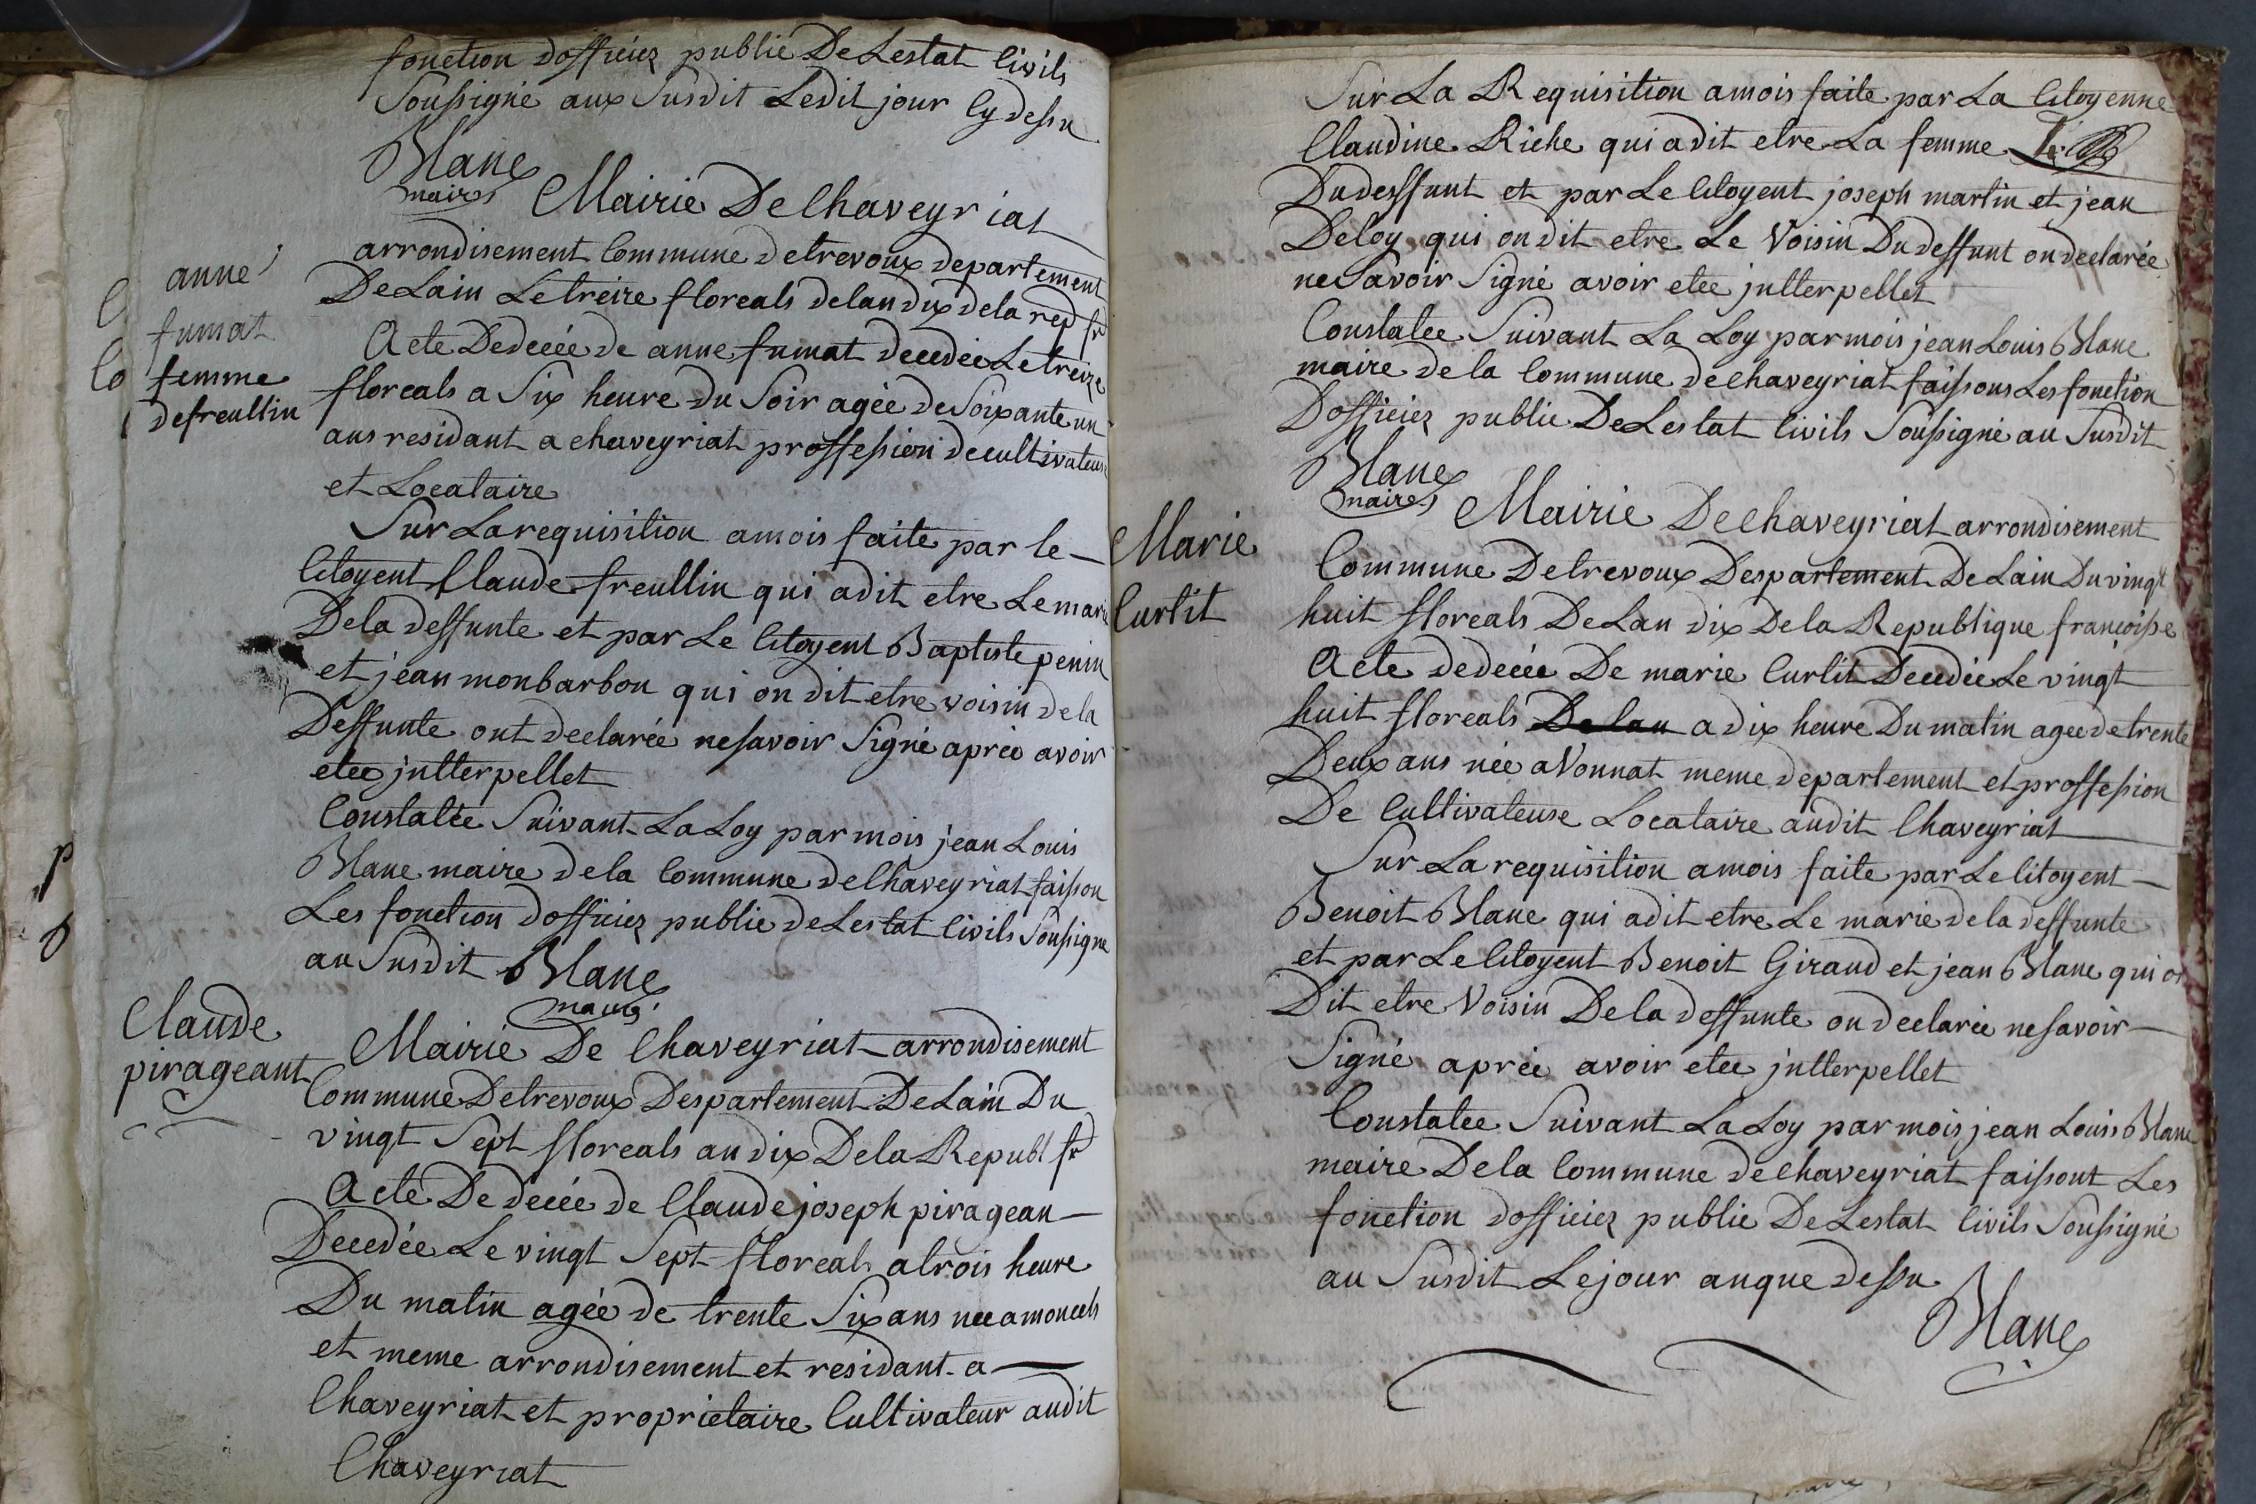 fonction dofficier public De Lestat Civils
Soussigné aux Susdit Ledit jour Cy dessu
Blanc
maire
Mairie De Chaveyriat
arrondisement Commune de trevoux departement
De Lain Le treize floreals de lan dix de la rep fr
anne
fumat
femme
de freullin
Acte De deceé de anne fumat decedée Le treize
floreals a Six heure Du Soir ageé de Soixante un
ans residant a chaveyriat proffession de cultivateuse
et Locataire
Sur La requisition a mois faite par le
Citoyent Claude freullin qui a dit etre Le marie
De la deffunte et par Le Citoyent Baptiste penin
et jean monbarbon qui on dit etre voisin de la
Deffunte ont declarée ne savoir Signé aprée avoir
etee jntterpellet
Constatée Suivant La Loy par mois jean Louis
Blanc maire de la Commune de Chaveyriat faisson
Les fonction dofficier public de Lestat Civils Soussigne
au Susdit Blanc
maire
Claude
pirageant
Mairie De Chaveyriat arrondisement
Commune De trevoux Despartement De Lain Du
vingt Sept floreals an dix De la Republ fr
Acte De deceé de Claude joseph piragean
Decedée Le vingt Sept floreals a trois heure
Du matin ageé de trente Six ans nee a moncels
et meme arrondisement et residant a
Chaveyriat et proprietaire Cultivateur audit
Chaveyriat
Sur La Requisition a mois faite par La Citoyenne
Claudine Riche qui a dit etre La femme
Du deffunt et par Le Citoyent joseph martin et jean
Deloy qui on dit etre Le Voisin Du deffunt on declarée
ne Savoir Signé avoir etee jntterpellet
Constatee Suivant La Loy par mois jean Louis Blanc
maire de la Commune de chaveyriat faissons Les fonction
Dofficier public De Lestat Civils Soussigné au Susdit
Blanc
maire
Marie
Curtit
Mairie De Chaveyriat arrondisement
Commune De trevoux Despartement De Lain Du vingt
huit floreals De Lan dix De la Republique françoisse
Acte de deceé De marie Curtit Decedée Le vingt
huit floreals De lan a dix heure Du matin agee de trente
Deux ans née a Vonnat meme departement et proffession
De Cultivateuse Locataire audit Chaveyriat
Sur La requisition a mois faite par Le Citoyent
Benoit Blanc qui a dit etre Le marie de la deffunte
et par Le Citoyent Benoit Giraud et jean Blanc qui on
Dit etre Voisin De la deffunte on declarée ne savoir
Signé aprée avoir etee jntterpellet
Constatee Suivant La Loy par mois jean Louis Blanc
maire De la Commune de Chaveyriat faissont Les
fonction dofficier public De Lestat Civils Soussigné
au Susdit Le jour anque dessu
Blanc